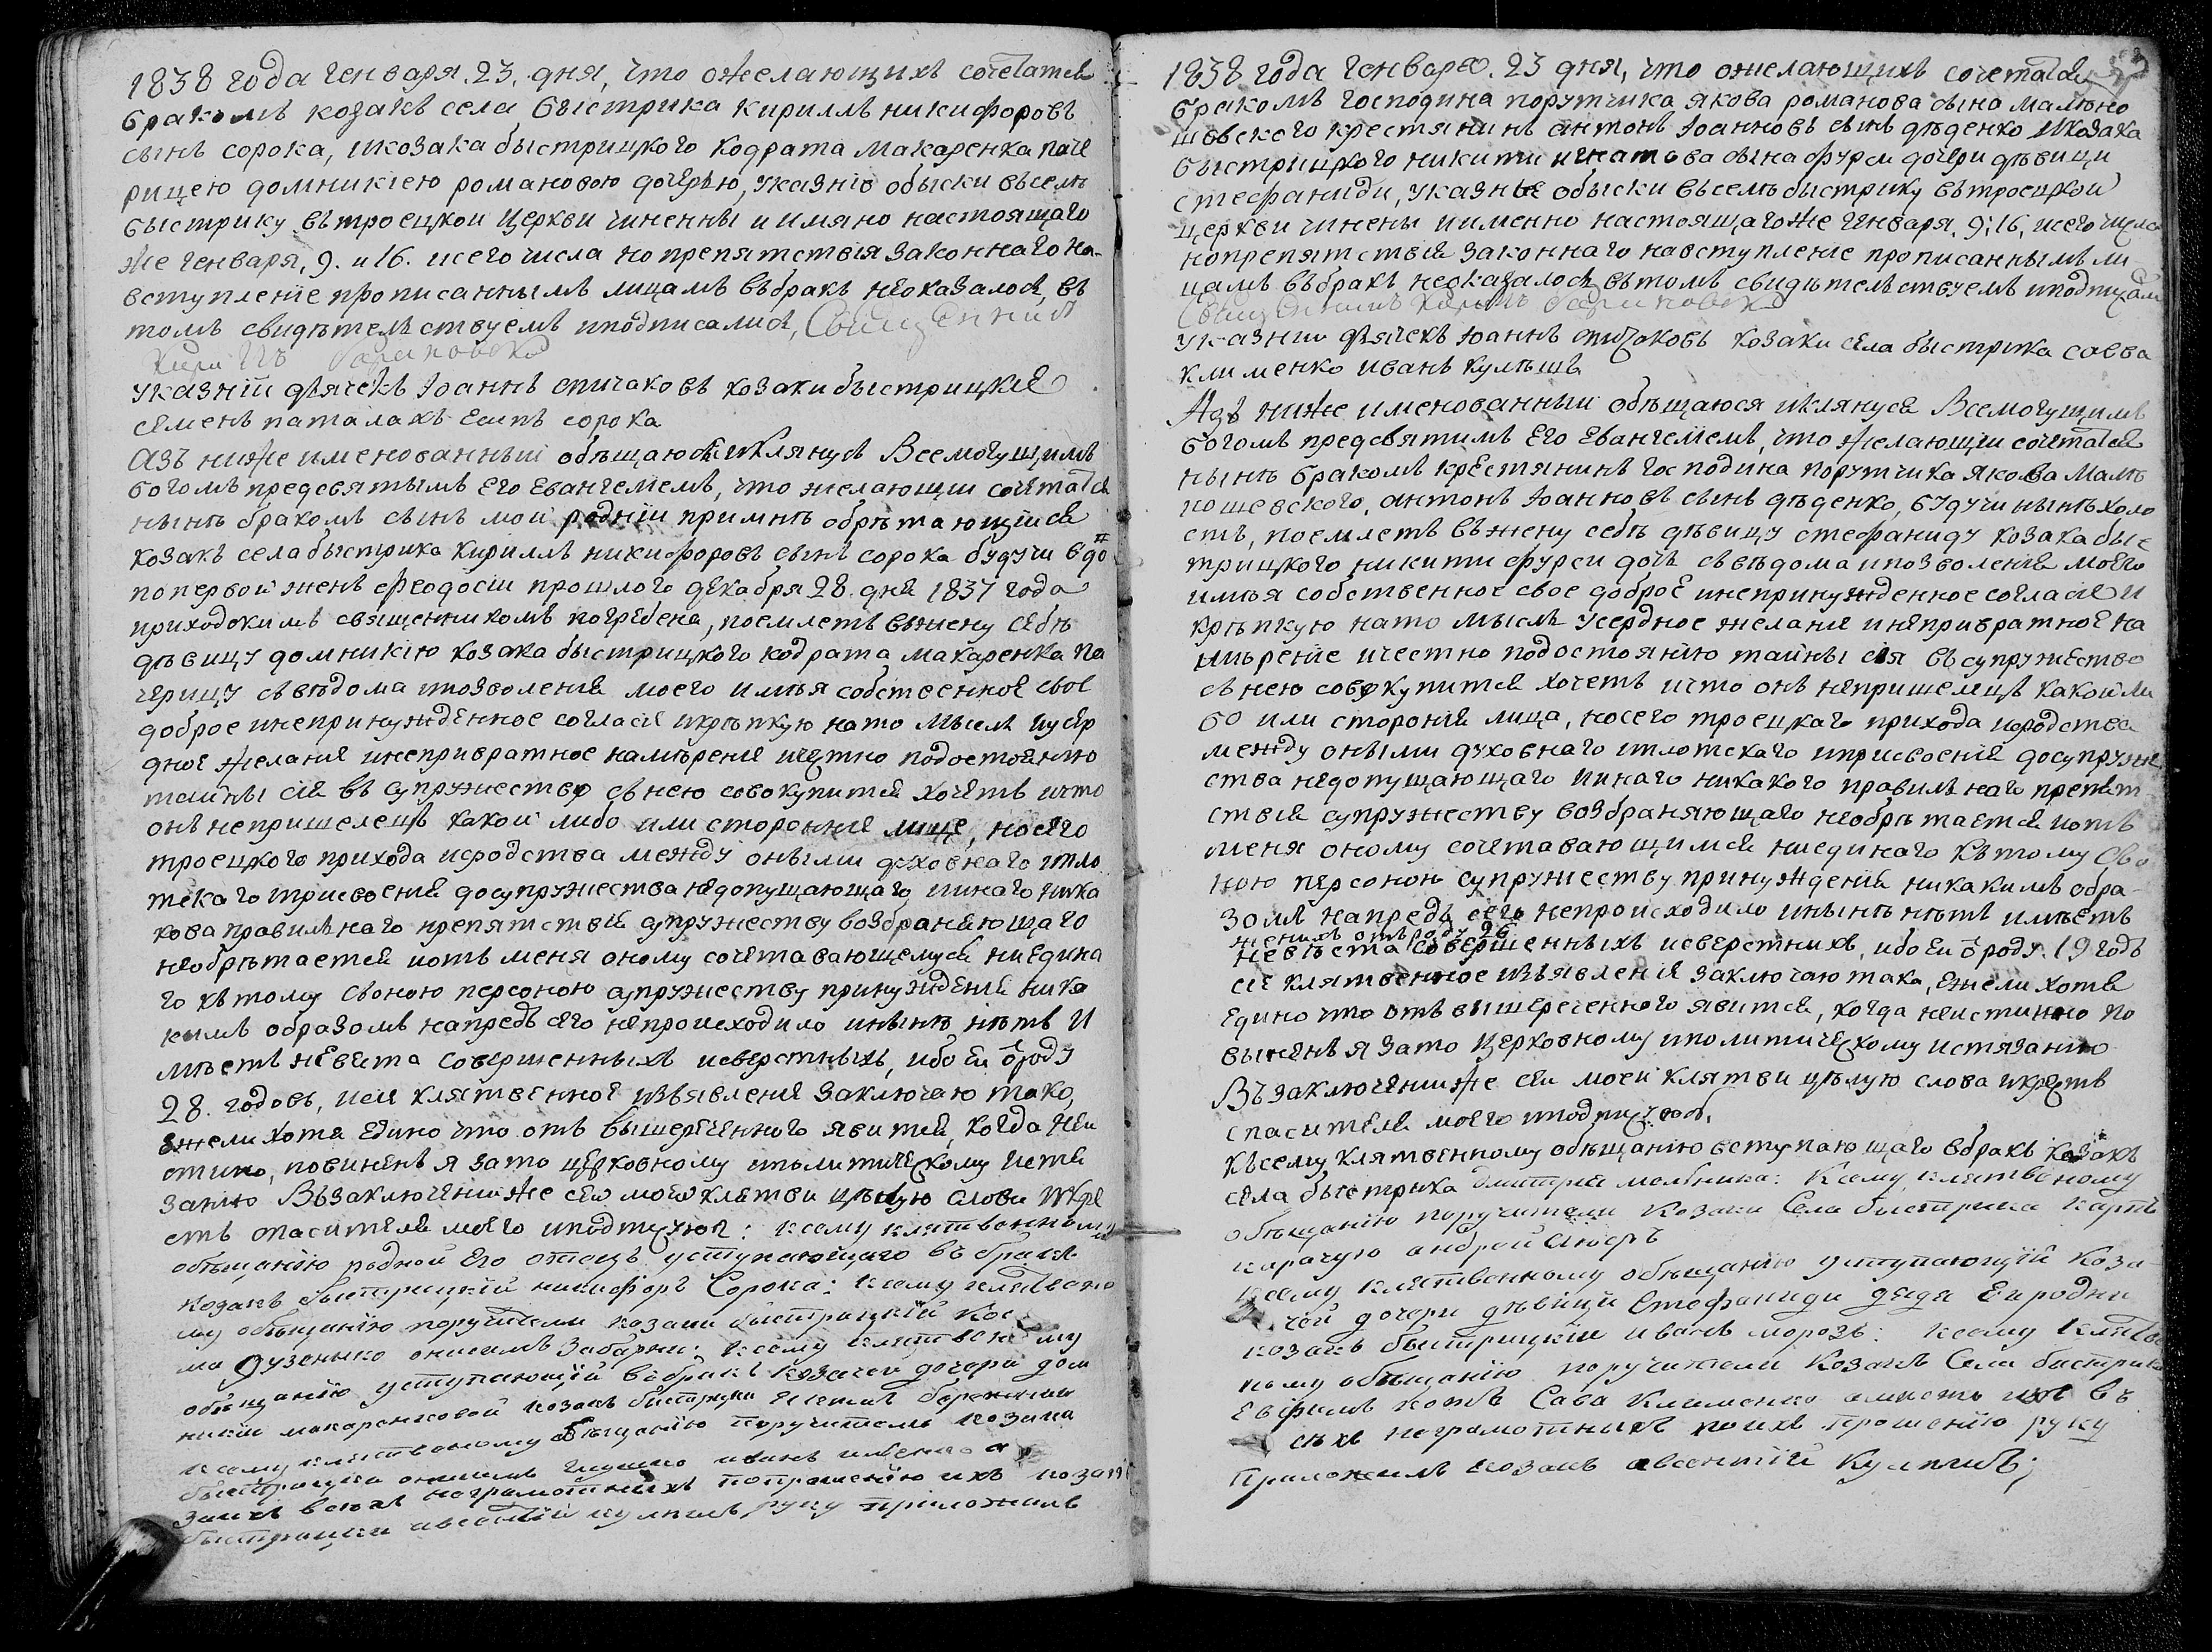 1838 года генваря. 23. дня, что ожелающихъ сочетатся
бракомъ козакъ села быстрика кириллъ никифоровъ
сынъ сорока, икозака быстрицкого кодрата макаренка паче
рицею домникіею романовою дочерью, указніе обыски въселѣ
быстрику въ троецкои церкви чиненны и имяно настоящаго
же генваря, 9. и 16. исего числа но препятствія законнаго на-
вступленіе прописаннымъ лицамъ въбракъ неоказалось, въ
томъ свидѣтелствуемъ иподписалися, Священникъ
указніи дячекъ Іоаннъ спичаковъ козаки быстрицкіе
семенъ паталахъ есипъ сорока
Азъ ниже именованныи обѣщаюся иклянуся Всемогущимъ
богомъ предсвятымъ его Евангелиемъ, что желающіи сочетатся
нынѣ бракомъ сынъ мои родніи примнѣ обрѣтающіися
козакъ села быстрика кириллъ никифоровъ сынъ сорока будучи вдо
поперво́й женѣ феодосіи прошлого декабря 28. дня 1837 года
приходскимъ священникомъ погребена, поемлетъ вжену себѣ
дѣвицу домникію козака быстрицкого кодрата макаренка па
черицу свѣдома ипозволенія моего имѣя собственное свое
доброе инепринужденное согласіе икрѣпкую на то мысль иусер
дное желаніе инепривратное намѣреніе ичестно подостоянію
таины сія въ супружество снею совокупится хочетъ ичто
онъ непришелецъ какои либо или сторонніе лице, носего
троецкого прихода исродства между оными духовнаго ипло
тскаго иприсвоенія досупружества недопущающаго, ииного ника
кова правилнаго препятствія супружеству возбраняющаго
необрѣтается иотъ меня оному сочетавающемуся ниедина
го кътому своною персоною супружеству принужденія ника
кимъ образомъ напредъ сего непроисходило инынѣ нѣтъ и
мѣетъ невеста совершенныхъ исверстныхъ, ибо еи ѿроду
28. годовъ, исіе клятвенное изъявленіе заключаю тако,
ежели хотя едино что отъ вышереченного явится, когда неи
стино, повиненъ я зато церковному иполитическому истя
занію Въ заключеніиже сеи моеи клятви цѣлую слова икре
стъ спасителя моего иподписуюс: ксему клятвенному
обѣщанію роднои его отецъ уступающаго въ бракъ
козакъ быстрицкій никифоръ Сорока: ксему клятвено
му обѣщанію поручители козаки быстрицкіи Кос
ма дузенко онисимъ Забарни: ксему клятвеному
обѣщанію уступающей вбракъ козачои дочери дом
никіи макаренковой козакъ быстрика
ксему клятвеному обѣщанію поручителѣ козаки
быстрицки онисимъ иванъ
неграмотныхъ попрошенію ихъ козакъ
быстрицки авсентій кулешъ руку приложилъ
1838 года генваря. 23 дня, что ожелающихъ сочетатся
бракомъ господина порутчика якова романова сына малюно
шевского крестянинъ антонъ Іоанновъ сынъ дѣденко икозака
быстрицкого никити игнатова сына фурси дочери дѣвици
стефаниди, указніе обыски въселѣ быстрику въ троецкои
церкви чинены иименно настоящагоже генваря. 9, 16, исего числа
нопрепятствія законнаго навступленіе прописаннымъ ли-
цамъ въбракъ неоказалося, вътомъ свидѣтелствуемъ иподписали
Священникъ
указніи дячекъ Іоаннъ спичаковъ козаки села быстрика савва
клименко иванъ кулѣшъ
Азъ ниже именованныи обѣщаюся иклянуся Всемогущимъ
богомъ предсвятимъ его Евангелиемъ, что желающіи сочетатся
нынѣ бракомъ крестянинъ господина порутчика якова малю
ношевского, антонъ Іоанновъ сынъ дѣденко, будучи нынѣ холо
стъ, поемлетъ въжену себѣ дѣвицу стефаниду козака быс
трицкого никити фурси дочь свѣдома ипозволенія моего
имѣя собственное свое доброе инепринужденное согласіе и
крѣпкую нато мысль усердное желаніе инепривратное на
мѣреніе ичестно подостоянію таины сія въсупружество
снею совокупится хочетъ ичто онъ непришелецъ какоили
бо или сторонія лица, носего троецкаго прихода исродства
между оными духовнаго иплотскаго иприсвоенія досупруже
ства недопущающаго ииного никакого правилнаго препят-
ствія супружеству возбраняющаго необрѣтается иотъ
меня оному сочетавающимся ниединаго кътому сво
ною персоною супружеству принужденія никакимъ обра-
зомъ напредъ сего непроисходило инынѣ нѣтъ имѣетъ
женихъ отъроду 26
невѣста совершенныхъ исверстнихъ, ибо еи ѿроду. 19 годъ
сіе клятвенное изъявленіе заключаю тако, ежели хотя
едино что отъ вышереченного явится, когда неистинно по
виненъ я зато церковному иполитическому истязанію
Въ заключеніиже сеи моеи клятви цѣлую слова икрестъ
спасителя моего иподписуюс.
ксему клятвенному обѣщанію вступающаго вбракъ козакъ
села быстрика дмитрій мелника: Ксему клятвеному
обѣщанію поручители козаки Села быстрика карпъ
карачую андрей
ксему клятвенному обѣщанію уступающій коза
чей дочери дѣвици Стефаниди дядя Еи родни
козакъ быстрицкіи иванъ морозъ: ксему клятве
ному обѣщанію поручители козакъ Села бистрика
Евфимъ Сава Клименко амѣсто ихъ въ
сѣхъ неграмотныхъ поихъ прошенію руку
приложилъ козакъ авсентій Кулѣшъ;